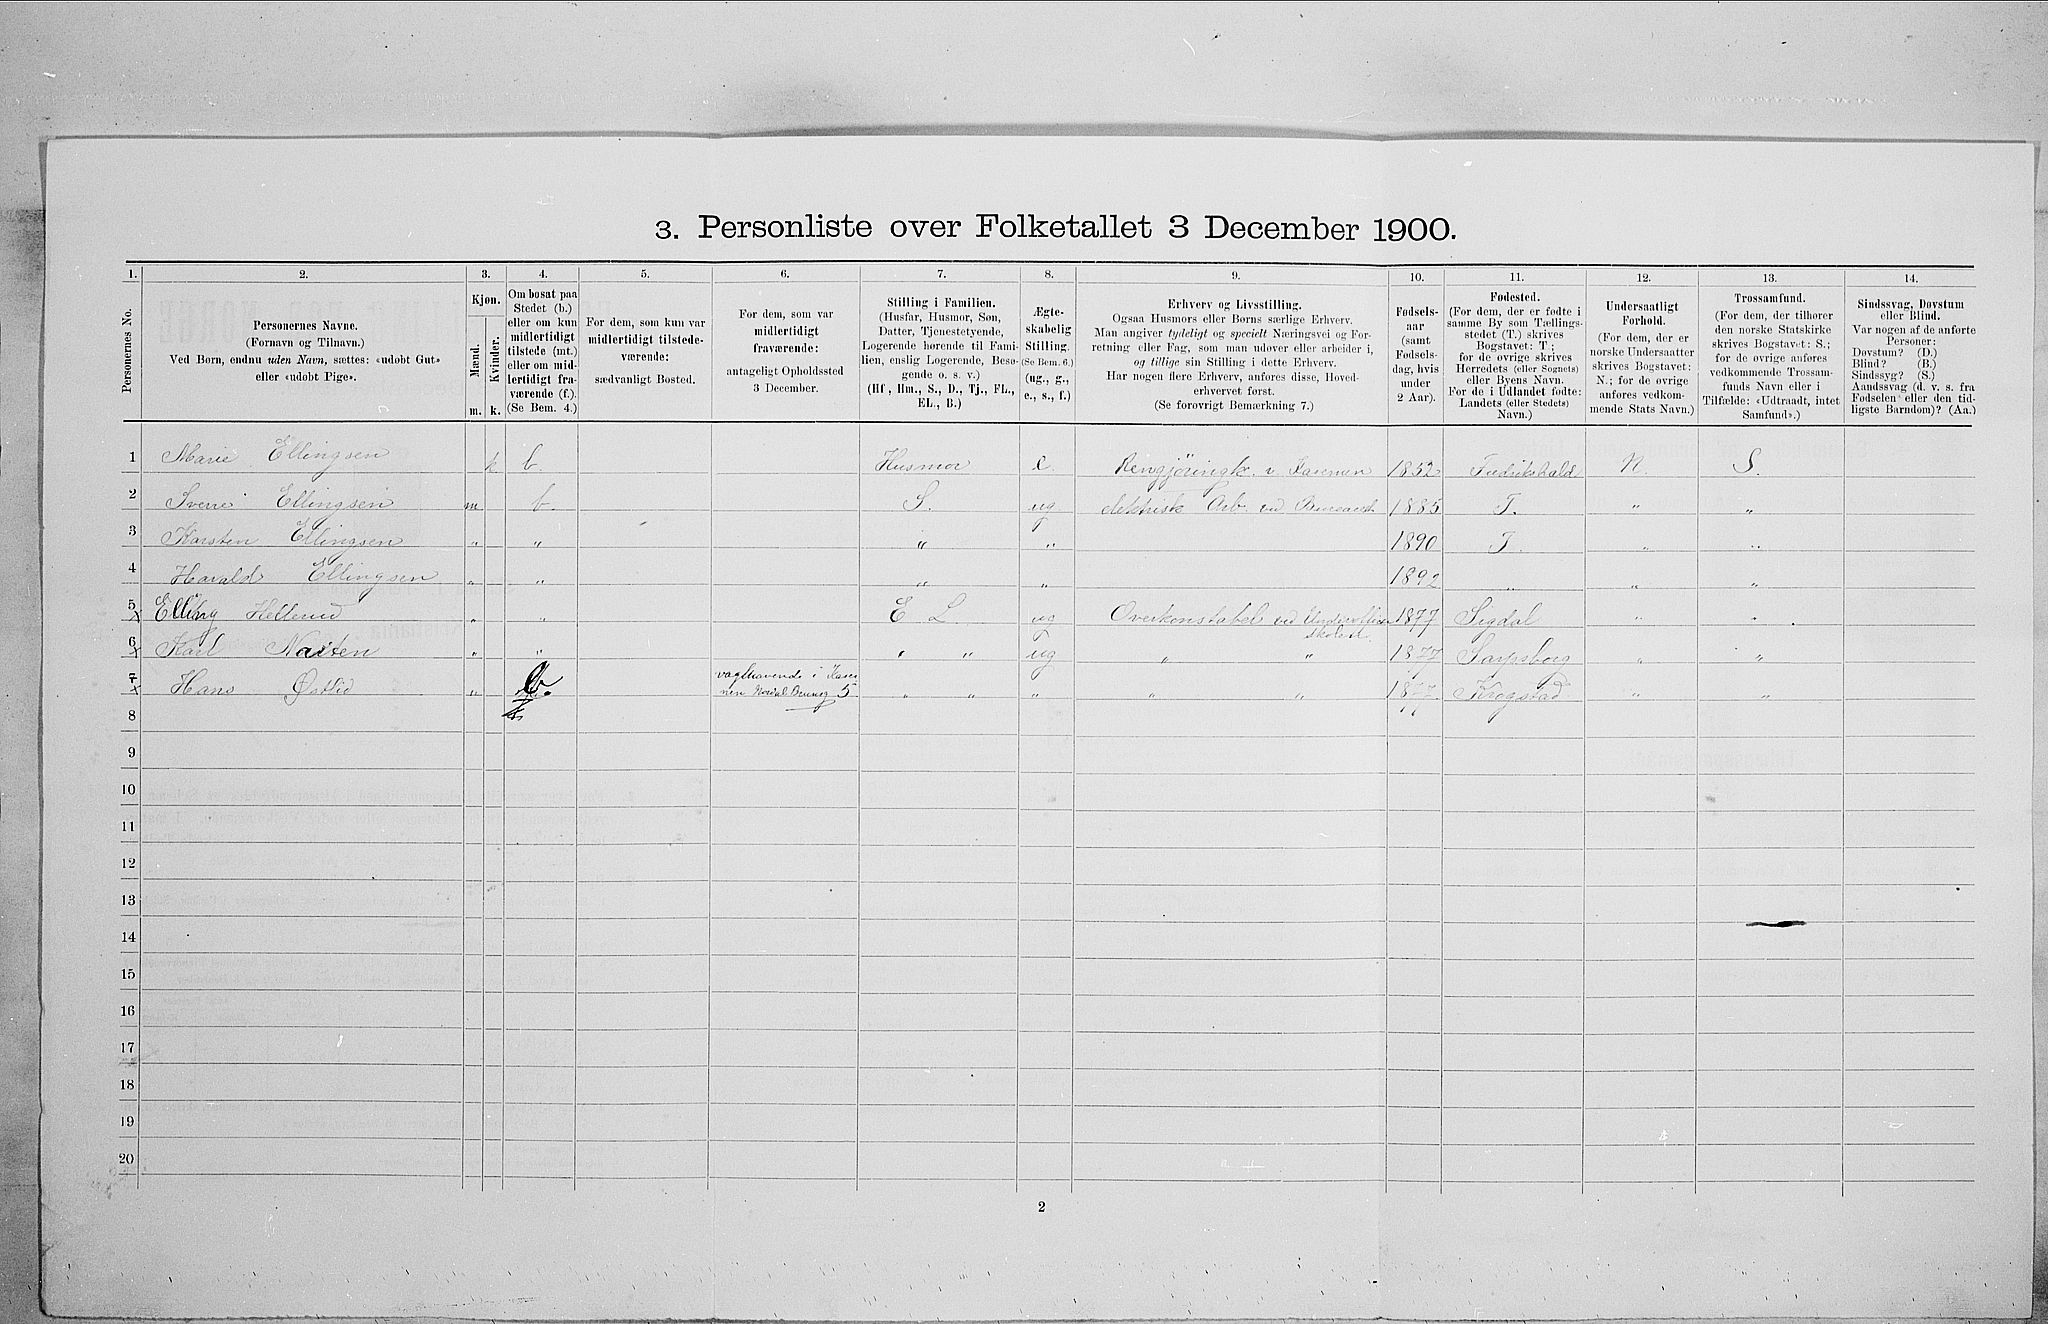 3. Personliste over Folketallet 3 December 1900.
1. 2. 3. 4. 5. 6. 7. 8. 9. 10. 11. 12. 13. 14.
Personernes No.
Personernes Navne.
(Fornavn og Tilnavn.)
Ved Børn, endnu uden Navn, sættes: «udøbt Gut»
eller «udøbt Pige».
Kjøn.
Mænd.
Kvinder.
m. k.
Om bosat paa
Stedet (b.)
eller om kun
midlertidigt
tilstede (mt.)
eller om mid-
lertidigt fra-
værende (f.).
(Se Bem. 4.)
For dem, som kun var
midlertidigt tilstede-
værende:
sædvanligt Bosted.
For dem, som var
midlertidigt
fraværende:
antageligt Opholdssted
3 December.
Stilling i Familien.
(Husfar, Husmor, Søn,
Datter, Tjenestetyende,
Logerende hørende til Fami-
lien, enslig Logerende, Besø-
gende o. s. v.)
(Hf, Hm., S., D., Tj., FL.,
EL., B.)
Ægte-
skabelig
Stilling.
(Se Bem. 6.)
(ug., g.,
e., s., f.)
Erhverv og Livsstilling.
Ogsaa Husmors eller Børns særlige Erhverv.
Man angiver tydeligt og specielt Næringsvei og For-
retning eller Fag, som man udøver eller arbeider i,
og tillige sin Stilling i dette Erhverv.
Har nogen flere Erhverv, anføres disse, Hoved-
erhvervet først.
(Se forøvrigt Bemærkning 7.)
Fødsels-
aar
(samt
Fødsels-
dag, hvis
under
2 Aar).
Fødested.
(For dem, der er fødte i
samme By som Tællings-
stedet (T.) skrives
Bogstavet: T.;
for de øvrige skrives
Herredets (eller Sognets)
eller Byens Navn.
For de i Udlandet fødte:
Landets (eller Stedets)
Navn.)
Undersaatligt
Forhold.
(For dem, der er
norske Undersaatter
skrives Bogstavet:
N.; for de øvrige
anføres vedkom-
mende Stats Navn.)
Trossamfund.
(For dem, der tilhører
den norske Statskirke
skrives Bogstavet: S.;
for de øvrige anføres
vedkommende Trossam-
funds Navn eller i
Tilfælde: «Udtraadt, intet
Samfund».)
Sindssvag, Døvstum
eller Blind.
Var nogen af de anførte
Personer:
Døvstum? (D.)
Blind? (B.)
Sindssyg? (S.)
Aandssvag (d. v. s. fra
Fødselen eller den tid-
ligste Barndom)? (Aa.)
1 Marie Ellingsen k b. Husmor e. Rengjøringsk. v Kasernen 1852 Fredrikshald N. S.
2 Sverre Ellingsen m b. S. ug elektrisk Arb. ved 1885 T. " "
3 Karsten Ellingsen " " " " 1890 T. " "
4 Harald Ellingsen " " " " 1892 " " "
5 Hellerud " " E L ug Overkonstabel ved 1877 Sigdal " "
skolen
6 Karl " " " " ug " " 1877 Sarpsborg " "
7 Hans Østlid " b. vagthavende i Kaser " " " " " 1877 Krogstad " "
nen 5
8
9
10
11
12
13
14
15
16
17
18
19
20
2